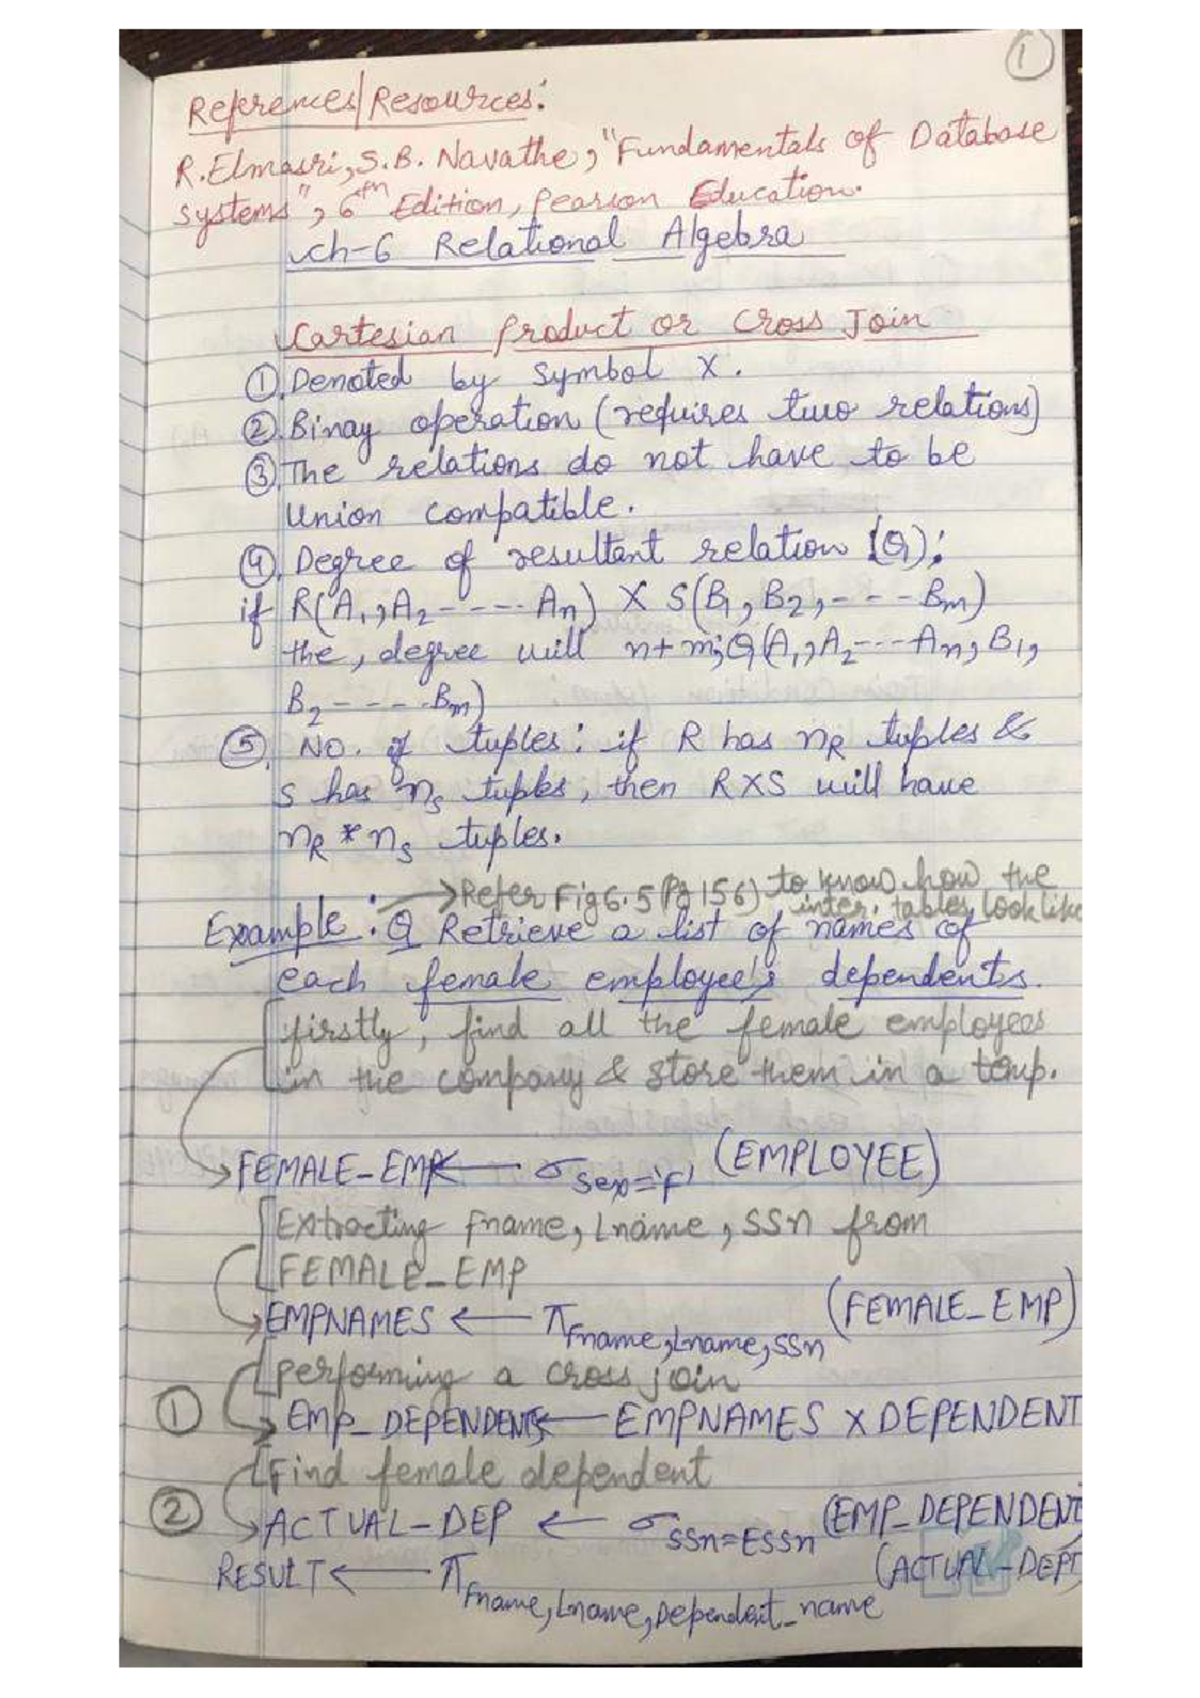 1
References/Resources:
R.Elmasri, S.B. Navathe, "Fundamentals of Database
Systems", 6th Edition, Pearson Education.
ch-6 Relational Algebra
Cartesian Product or Cross Join
① Denoted by symbol X.
② Binay operation (requires two relations)
③ The relations do not have to be
Union compatible.
④ Degree of resultant relation (Q):
if R(A1, A2 ----- An) X S(B1, B2, - - - Bm)
the, degree will n+m; Q(A1, A2 --- An, B1,
B2 - - - - Bm)
⑤ No. of tuples: if R has nR tuples &
S has nS tuples, then RXS will have
nR * nS tuples.
→ Refer Fig 6.5 (Pg 156) to know how the
inter. tables look like
Example: Q Retrieve a list of names of
each female employee's dependents.
[firstly, find all the female employees
in the company & store them in a temp.
FEMALE_EMP ← σ Sex='F' (EMPLOYEE)
[Extracting Fname, Lname, SSn from
FEMALE_EMP
EMPNAMES ← π Fname, Lname, SSn (FEMALE_EMP)
[performing a cross join
① EMP_DEPENDENTS ← EMPNAMES X DEPENDENT
[Find female dependent
② ACTUAL-DEP ← σ SSn=ESSn (EMP_DEPENDENT
RESULT ← π Fname, Lname, Dependent_name (ACTUAL-DEPT